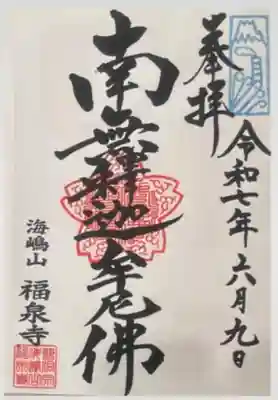 奉拝
令和七年六月九日
南無釋迦牟尼佛
海嶋山
福泉寺